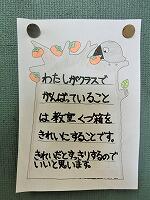 わたしがクラスで
がんばっていること
は教室くつ箱を
きれいにすることです。
きれいだとすっきりするので
いいと思います。